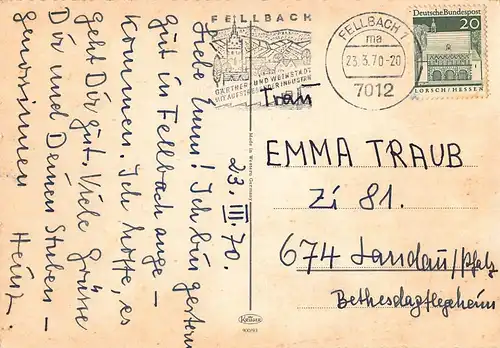 FELLBACH
GÄRTNER- UND WEINSTADT
MIT AUFSTREBENDER INDUSTRIE
FELLBACH 1
ma
23.3.70-20
7012
Deutsche Bundespost
20
LORSCH/HESSEN
23. III. 70.
Liebe Emmi! Ich bin gestern
gut in Fellbach ange-
kommen. Ich hoffe, es
geht Dir gut. Viele Grüsse
Dir und Deinen Stuben-
genossinnen
Heinz.
Made in Western Germany
Krüger
900/93
Frau
EMMA TRAUB
Zi 81.
674 Landau/Pfalz
Bethesdapflegeheim